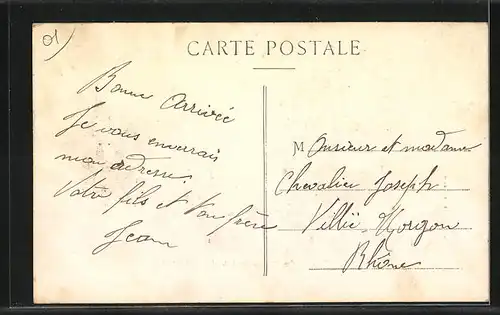 01)
CARTE POSTALE
Bonne Arrivée
Je vous enverrais
mon adresse.
Votre fils et ton frère
Jean
Monsieur et madame
Chevalier Joseph
Villié Morgon
Rhône